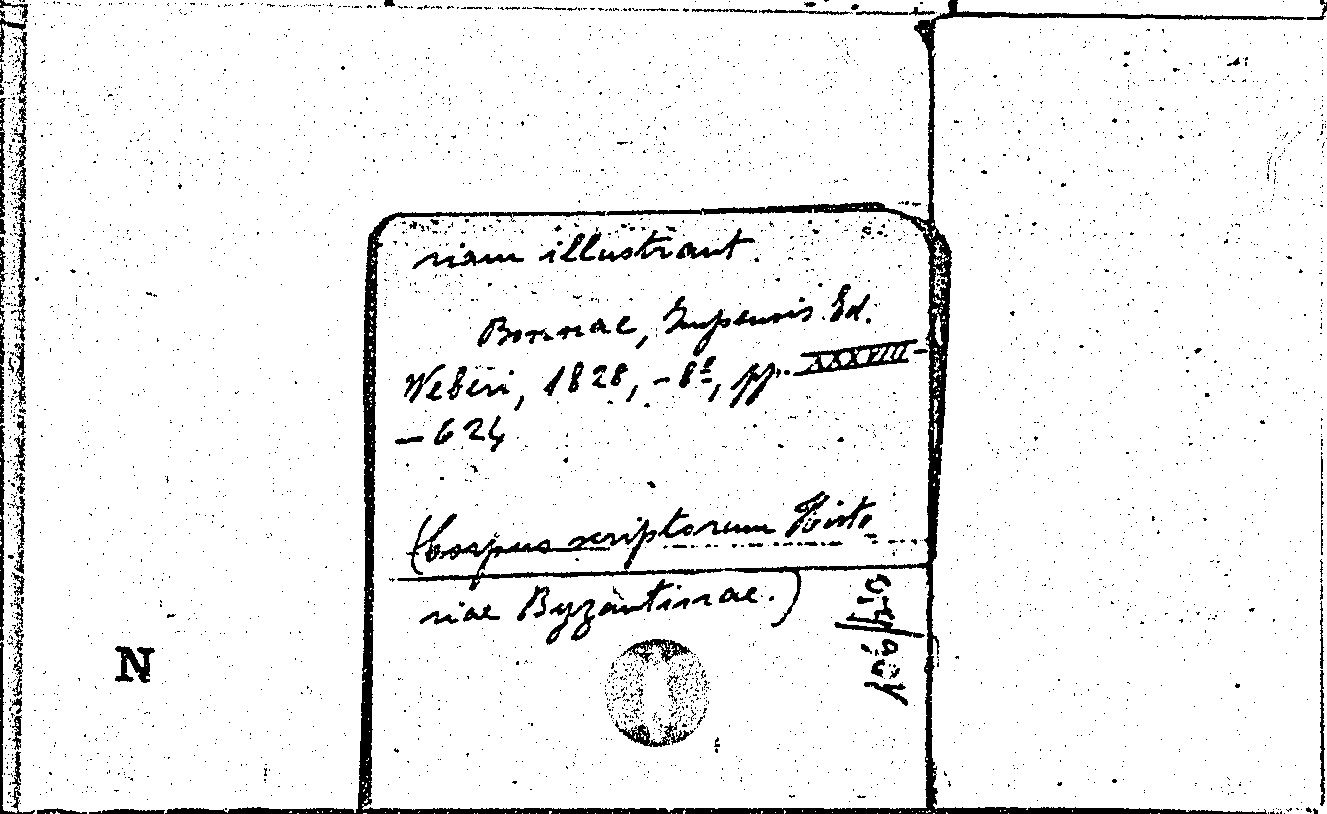 riam illustrant.
Bonnae, Impensis Ed.
Weberi, 1828, -8º, pp. XXXVIII-
-624
(Corpus scriptorum Histo
riae Byzantinae.)
N